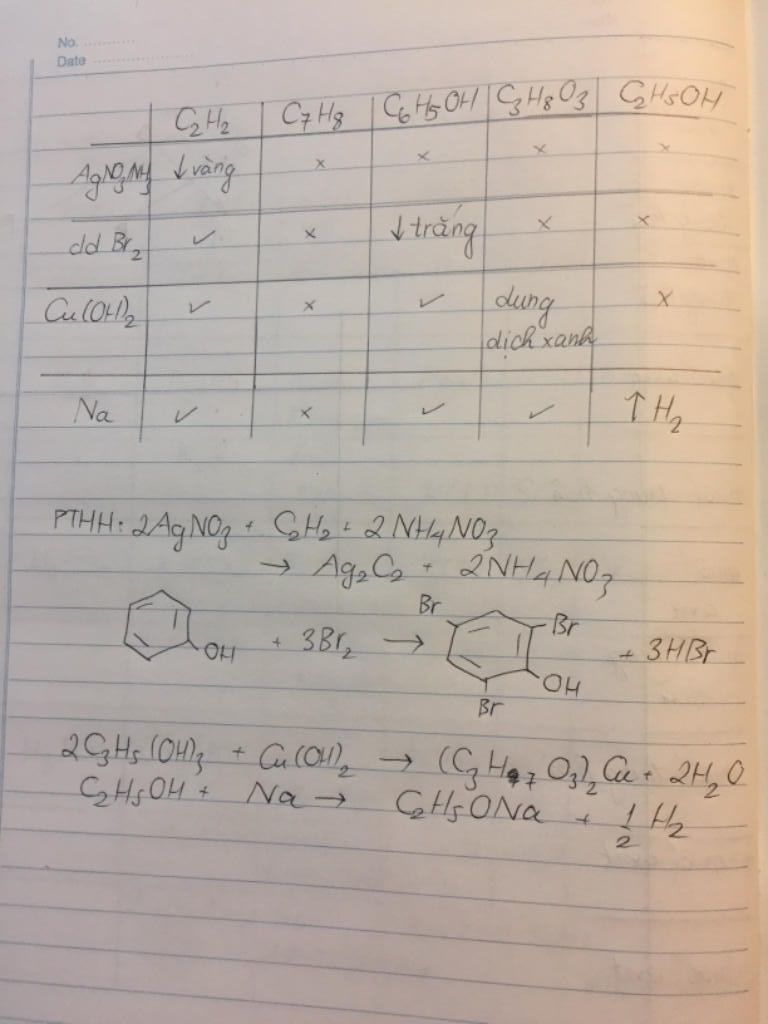 No. ............
Date ............
C2H2 C7H8 C6H5OH C3H8O3 C2H5OH
AgNO3/NH3 ↓vàng × × × ×
dd Br2 ✓ × ↓trắng × ×
Cu(OH)2 ✓ × ✓ dung ×
dịch xanh
Na ✓ × ✓ ✓ ↑H2
PTHH: 2AgNO3 + C2H2 + 2NH4NO3
→ Ag2C2 + 2NH4NO3
OH + 3Br2 → Br Br OH Br + 3HBr
2C3H5(OH)3 + Cu(OH)2 → (C3H7O3)2Cu + 2H2O
C2H5OH + Na → C2H5ONa + 1/2 H2